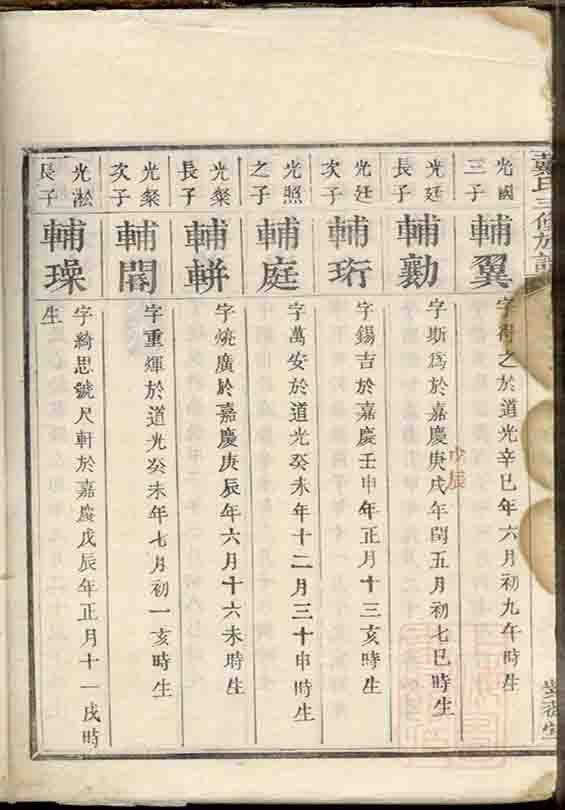 氏三修族譜
光國三子
輔翼
字得之於道光辛巳年六月初九午時生
光廷長子
輔勷
字斯為於嘉慶庚戌年閏五月初七巳時生
少辰
光廷次子
輔珩
字錫吉於嘉慶壬申年正月十三亥時生
光照之子
輔庭
字萬安於道光癸未年十二月三十申時生
光粲長子
輔
字燒廣於嘉慶庚辰年六月十六未時生
光粲次子
輔
字重煇於道光癸未年七月初一亥時生
光淞長子
輔璪
字綺思號尺軒於嘉慶戊辰年正月十一戌時
生